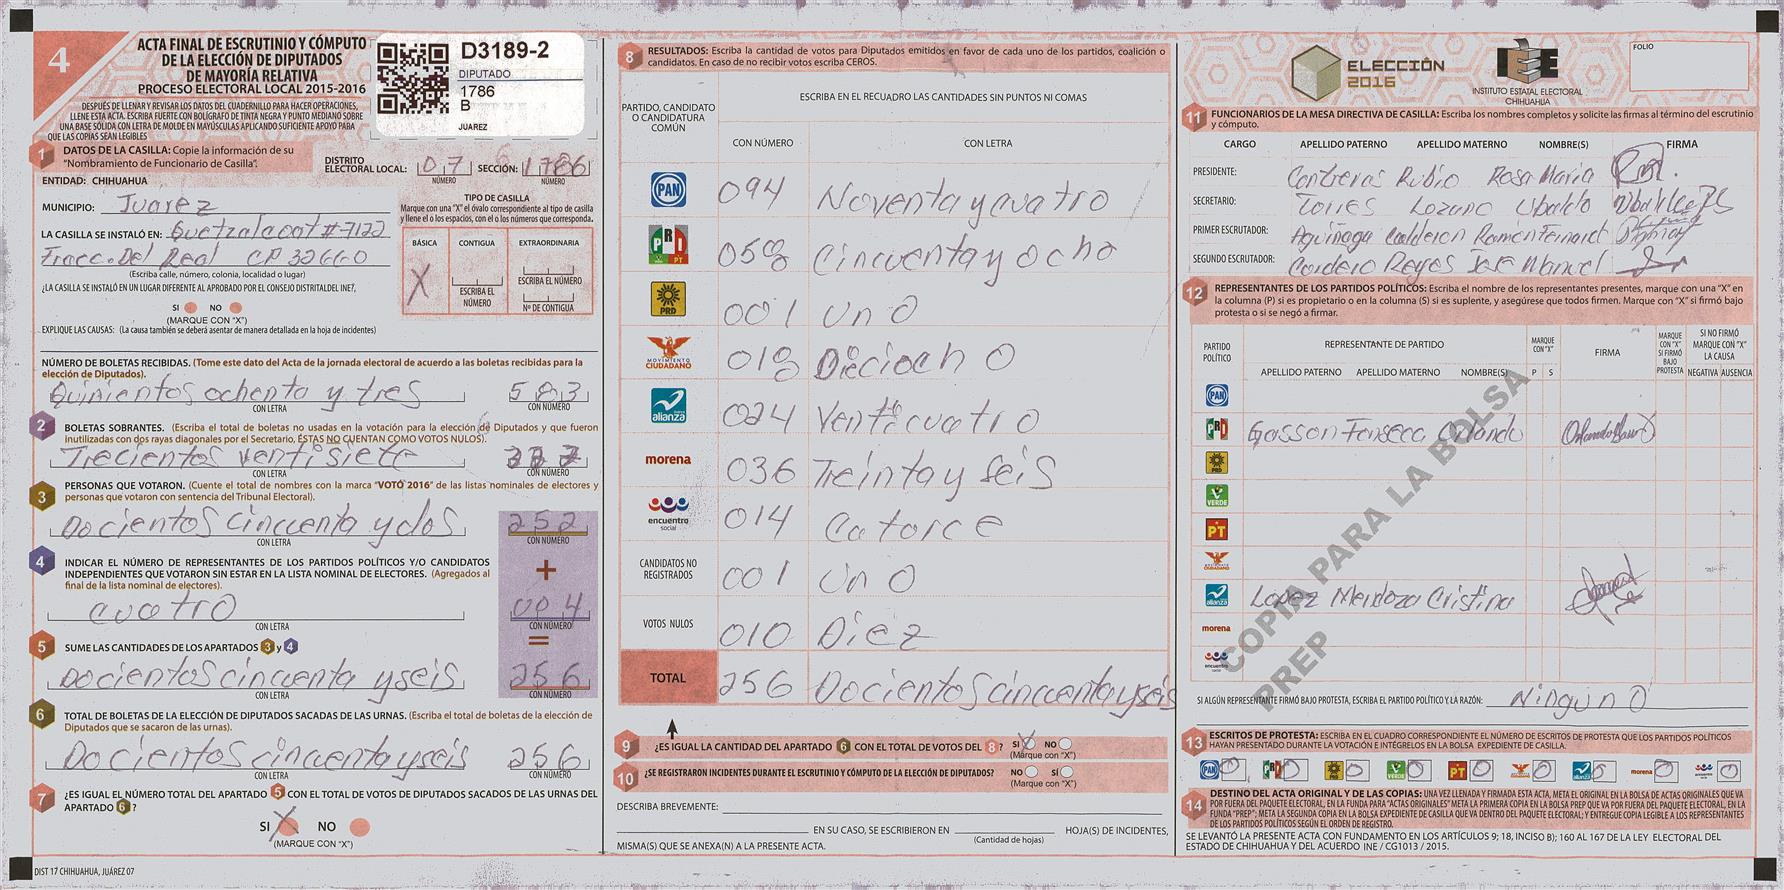 4
ACTA FINAL DE ESCRUTINIO Y CÓMPUTO
DE LA ELECCIÓN DE DIPUTADOS
DE MAYORÍA RELATIVA
PROCESO ELECTORAL LOCAL 2015-2016
DESPUÉS DE LLENAR Y REVISAR LOS DATOS DEL CUADERNILLO PARA HACER OPERACIONES,
LLENE ESTA ACTA. ESCRIBA FUERTE CON BOLÍGRAFO DE TINTA NEGRA Y PUNTO MEDIANO SOBRE
UNA BASE SÓLIDA CON LETRA DE MOLDE EN MAYÚSCULAS APLICANDO SUFICIENTE APOYO PARA
QUE LAS COPIAS SEAN LEGIBLES
D3189-2
DIPUTADO
1786
B
JUAREZ
1 DATOS DE LA CASILLA: Copie la información de su
"Nombramiento de Funcionario de Casilla".
DISTRITO ELECTORAL LOCAL: 07 NÚMERO SECCIÓN: 1786 NÚMERO
ENTIDAD: CHIHUAHUA
MUNICIPIO: Juarez
LA CASILLA SE INSTALÓ EN: Quetzalcoat #7122
Fracc. Del Real CP 32660
(Escriba calle, número, colonia, localidad o lugar)
¿LA CASILLA SE INSTALÓ EN UN LUGAR DIFERENTE AL APROBADO POR EL CONSEJO DISTRITAL DEL INE?,
SI NO
(MARQUE CON "X")
EXPLIQUE LAS CAUSAS: (La causa también se deberá asentar de manera detallada en la hoja de incidentes)
TIPO DE CASILLA
Marque con una "X" el óvalo correspondiente al tipo de casilla
y llene el o los espacios, con el o los números que corresponda.
BÁSICA CONTIGUA EXTRAORDINARIA
X ESCRIBA EL NÚMERO ESCRIBA EL NÚMERO
Nº DE CONTIGUA
NÚMERO DE BOLETAS RECIBIDAS. (Tome este dato del Acta de la jornada electoral de acuerdo a las boletas recibidas para la
elección de Diputados).
Quinientos ochenta y tres 583
CON LETRA CON NÚMERO
2 BOLETAS SOBRANTES. (Escriba el total de boletas no usadas en la votación para la elección de Diputados y que fueron
inutilizadas con dos rayas diagonales por el Secretario, ÉSTAS NO CUENTAN COMO VOTOS NULOS).
Trecientos ventisiete 327
CON LETRA CON NÚMERO
3 PERSONAS QUE VOTARON. (Cuente el total de nombres con la marca "VOTÓ 2016" de las listas nominales de electores y
personas que votaron con sentencia del Tribunal Electoral).
Docientos cincuenta y dos 252
CON LETRA CON NÚMERO
4 INDICAR EL NÚMERO DE REPRESENTANTES DE LOS PARTIDOS POLÍTICOS Y/O CANDIDATOS
INDEPENDIENTES QUE VOTARON SIN ESTAR EN LA LISTA NOMINAL DE ELECTORES. (Agregados al
final de la lista nominal de electores).
+
cuatro 004
CON LETRA CON NÚMERO
5 SUME LAS CANTIDADES DE LOS APARTADOS 3 y 4
=
Docientos cincuenta y seis 256
CON LETRA CON NÚMERO
6 TOTAL DE BOLETAS DE LA ELECCIÓN DE DIPUTADOS SACADAS DE LAS URNAS. (Escriba el total de boletas de la elección de
Diputados que se sacaron de las urnas).
Docientos cincuenta y seis 256
CON LETRA CON NÚMERO
7 ¿ES IGUAL EL NÚMERO TOTAL DEL APARTADO 5 CON EL TOTAL DE VOTOS DE DIPUTADOS SACADOS DE LAS URNAS DEL
APARTADO 6 ?
SI X NO
(MARQUE CON "X")
DIST 17 CHIHUAHUA, JUÁREZ 07
8 RESULTADOS: Escriba la cantidad de votos para Diputados emitidos en favor de cada uno de los partidos, coalición o
candidatos. En caso de no recibir votos escriba CEROS.
PARTIDO, CANDIDATO O CANDIDATURA COMÚN
ESCRIBA EN EL RECUADRO LAS CANTIDADES SIN PUNTOS NI COMAS
CON NÚMERO CON LETRA
PAN 094 Noventa y cuatro
PRI VERDE PT 058 Cincuenta y ocho
PRD 001 Uno
MOVIMIENTO CIUDADANO 018 Dieciocho
alianza 024 Venticuatro
morena 036 Treinta y seis
encuentro social 014 Catorce
CANDIDATOS NO REGISTRADOS 001 Uno
VOTOS NULOS 010 Diez
TOTAL 256 Docientos cincuenta y seis
9 ¿ES IGUAL LA CANTIDAD DEL APARTADO 6 CON EL TOTAL DE VOTOS DEL 8 ? SI X NO
(Marque con "X")
10 ¿SE REGISTRARON INCIDENTES DURANTE EL ESCRUTINIO Y CÓMPUTO DE LA ELECCIÓN DE DIPUTADOS? NO SI
(Marque con "X")
DESCRIBA BREVEMENTE:
EN SU CASO, SE ESCRIBIERON EN HOJA(S) DE INCIDENTES,
(Cantidad de hojas)
MISMA(S) QUE SE ANEXA(N) A LA PRESENTE ACTA.
ELECCIÓN 2016
IEE
INSTITUTO ESTATAL ELECTORAL
CHIHUAHUA
FOLIO
11 FUNCIONARIOS DE LA MESA DIRECTIVA DE CASILLA: Escriba los nombres completos y solicite las firmas al término del escrutinio
y cómputo.
CARGO APELLIDO PATERNO APELLIDO MATERNO NOMBRE(S) FIRMA
PRESIDENTE: Contreras Rubio Rosa Maria
SECRETARIO: Torres Lozano Ubaldo
PRIMER ESCRUTADOR: Aguinaga Calderon Ramon Fernand
SEGUNDO ESCRUTADOR: Cordero Reyes Jose Manuel
12 REPRESENTANTES DE LOS PARTIDOS POLÍTICOS: Escriba el nombre de los representantes presentes, marque con una "X" en
la columna (P) si es propietario o en la columna (S) si es suplente, y asegúrese que todos firmen. Marque con "X" si firmó bajo
protesta o si se negó a firmar.
PARTIDO POLÍTICO REPRESENTANTE DE PARTIDO MARQUE CON "X" FIRMA MARQUE CON "X" SI FIRMÓ BAJO PROTESTA SI NO FIRMÓ MARQUE CON "X" LA CAUSA
APELLIDO PATERNO APELLIDO MATERNO NOMBRE(S) P S NEGATIVA AUSENCIA
PAN
PRI Gasson Fonseca Orlando
PRD
VERDE
PT
MOVIMIENTO CIUDADANO
alianza Lopez Mendoza Cristina
morena
encuentro social
COPIA PARA LA BOLSA
PREP
SI ALGÚN REPRESENTANTE FIRMÓ BAJO PROTESTA, ESCRIBA EL PARTIDO POLÍTICO Y LA RAZÓN: Ninguno
13 ESCRITOS DE PROTESTA: ESCRIBA EN EL CUADRO CORRESPONDIENTE EL NÚMERO DE ESCRITOS DE PROTESTA QUE LOS PARTIDOS POLÍTICOS
HAYAN PRESENTADO DURANTE LA VOTACIÓN E INTÉGRELOS EN LA BOLSA EXPEDIENTE DE CASILLA.
PAN 0 PRI 0 PRD 0 VERDE 0 PT 0 MOVIMIENTO CIUDADANO 0 alianza 0 morena 0 encuentro social 0
14 DESTINO DEL ACTA ORIGINAL Y DE LAS COPIAS: UNA VEZ LLENADA Y FIRMADA ESTA ACTA, META EL ORIGINAL EN LA BOLSA DE ACTAS ORIGINALES QUE VA
POR FUERA DEL PAQUETE ELECTORAL, EN LA FUNDA PARA "ACTAS ORIGINALES" META LA PRIMERA COPIA EN LA BOLSA PREP QUE VA POR FUERA DEL PAQUETE ELECTORAL, EN LA
FUNDA "PREP"; META LA SEGUNDA COPIA EN LA BOLSA EXPEDIENTE DE CASILLA QUE VA DENTRO DEL PAQUETE ELECTORAL; Y ENTREGUE COPIA LEGIBLE A LOS REPRESENTANTES
DE LOS PARTIDOS POLÍTICOS SEGÚN EL ORDEN DE REGISTRO.
SE LEVANTÓ LA PRESENTE ACTA CON FUNDAMENTO EN LOS ARTÍCULOS 9; 18, INCISO B); 160 AL 167 DE LA LEY ELECTORAL DEL
ESTADO DE CHIHUAHUA Y DEL ACUERDO INE / CG1013 / 2015.